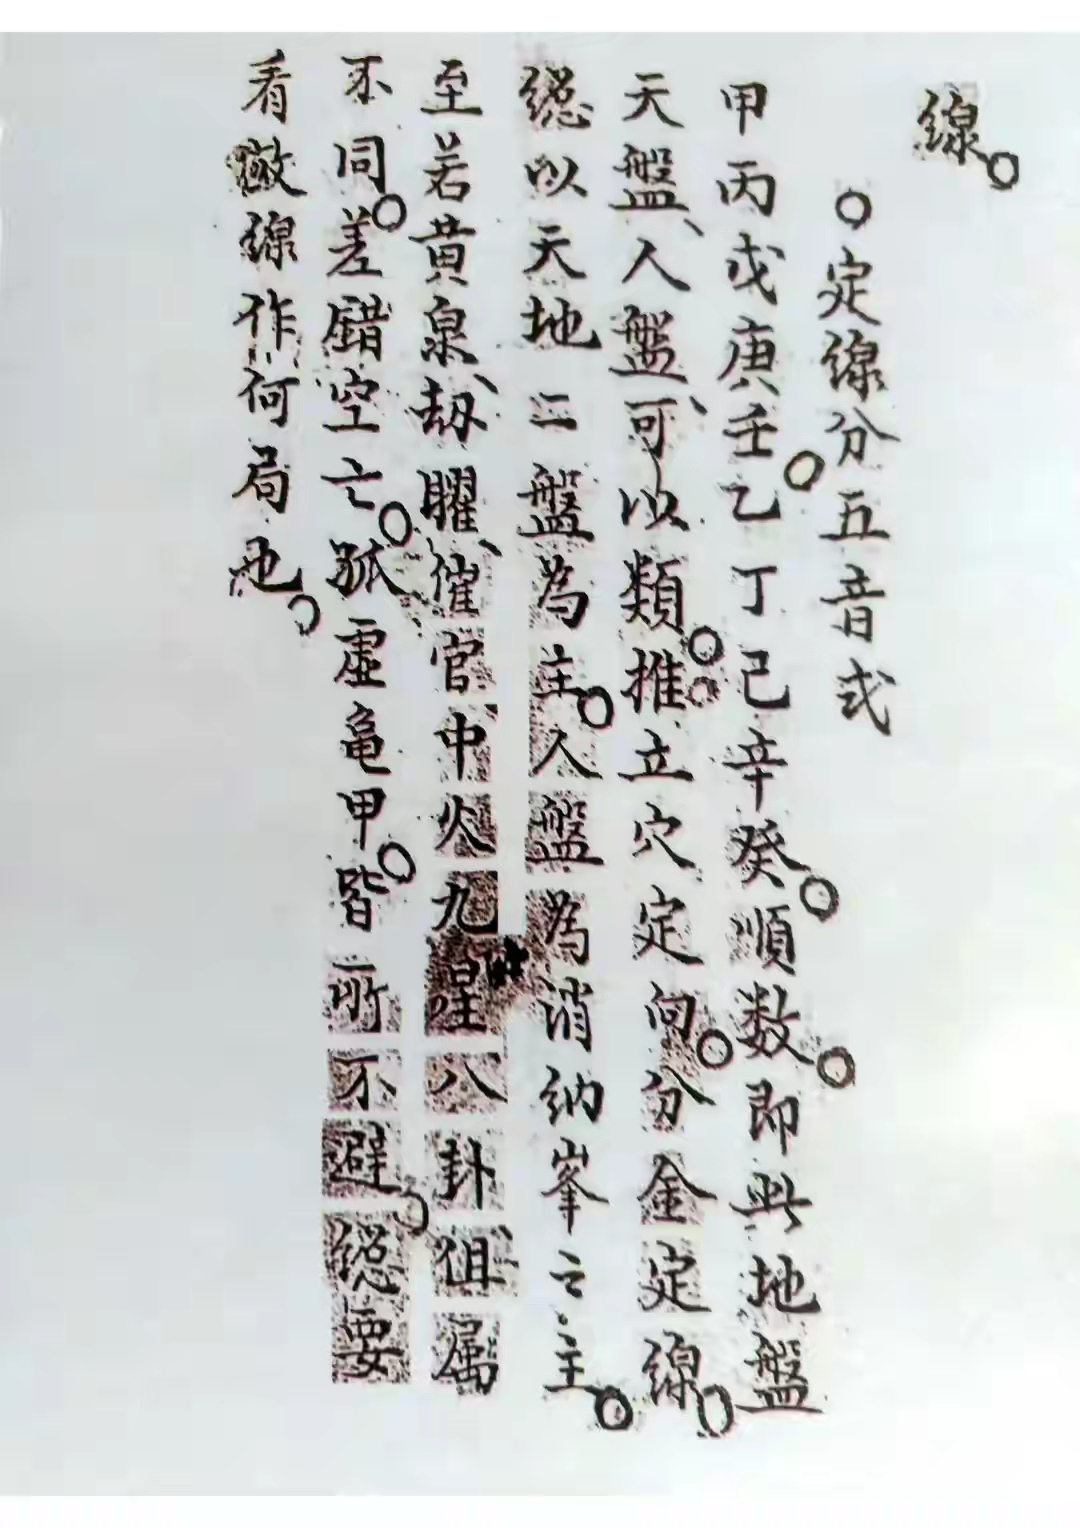 線。
○定線分五音式
甲丙戊庚壬。乙丁己辛癸。順数。即此地盤
天盤、人盤、可以類。推立穴定向。分金定線。
総以天地二盤為主。人盤為消納峯之主。
至若黄泉、劫曜、催官中火九星八卦、但属
不同。差錯空亡。孤虚亀甲。皆所不避。総要
看做線作何局也。